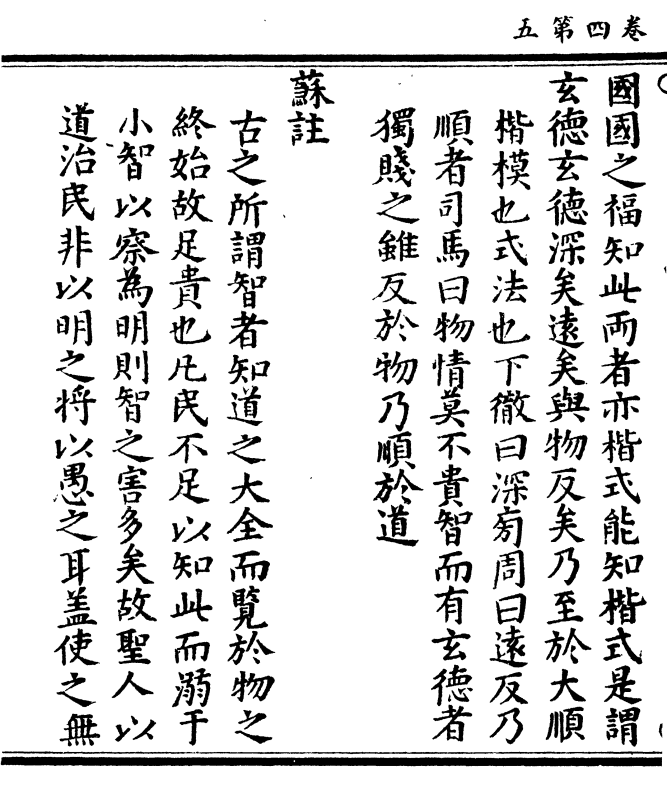 卷四第五
國國之福知此両者亦楷式能知楷式是謂
玄德玄德深矣遠矣與物反矣乃至於大順
楷模也式法也下徹曰深旁周曰遠反乃
順者司馬曰物情莫不貴智而有玄德者
獨賤之雖反於物乃順於道
蘇註
古之所謂智者知道之大全而覽於物之
終始故足貴也凡民不足以知此而溺于
小智以察為明則智之害多矣故聖人以
道治民非以明之将以愚之耳盖使之無